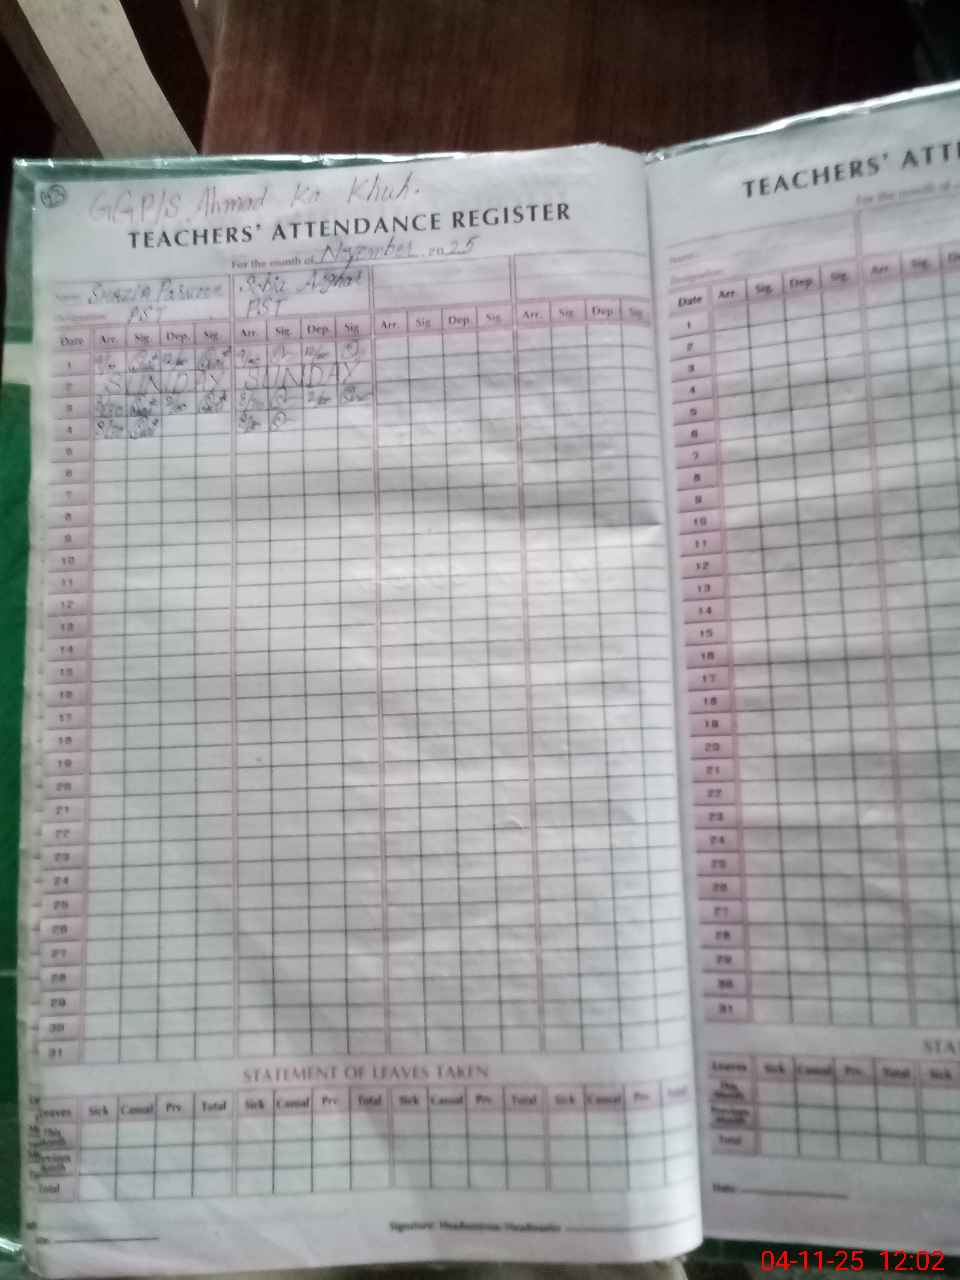 GGP/S. Ahmad Ka Khuh.
TEACHERS' ATTENDANCE REGISTER
For the month of November 2025
Name SHAZIA PARVEEN Sobia Asghar
PST PST
Date Arr. Sig. Dep. Sig. Arr. Sig. Dep. Sig. Arr. Sig. Dep. Sig. Arr. Sig. Dep. Sig.
1
2 SUNDAY SUNDAY
3
4
5
6
7
8
9
10
11
12
13
14
15
16
17
18
19
20
21
22
23
24
25
26
27
28
29
30
31
STATEMENT OF LEAVES TAKEN
Leaves Sick Casual Prv. Total Sick Casual Prv. Total Sick Casual Prv. Total Sick Casual Prv. Total
This Month
Previous Month
Total
Signature Headmistress/Headmaster
TEACHERS' ATTE
For the month of
Name
Designation
Date Arr. Sig. Dep. Sig. Arr. Sig.
1
2
3
4
5
6
7
8
9
10
11
12
13
14
15
16
17
18
19
20
21
22
23
24
25
26
27
28
29
30
31
STA
Leaves Sick Casual Prv. Total Sick
This Month
Previous Month
Total
Date
04-11-25 12:02